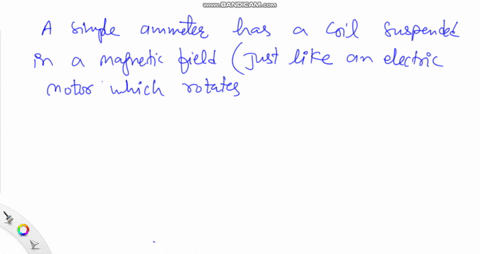 www.BANDICAM.com
A simple ammeter has a coil suspended
in a magnetic field (just like an electric
motor which rotates